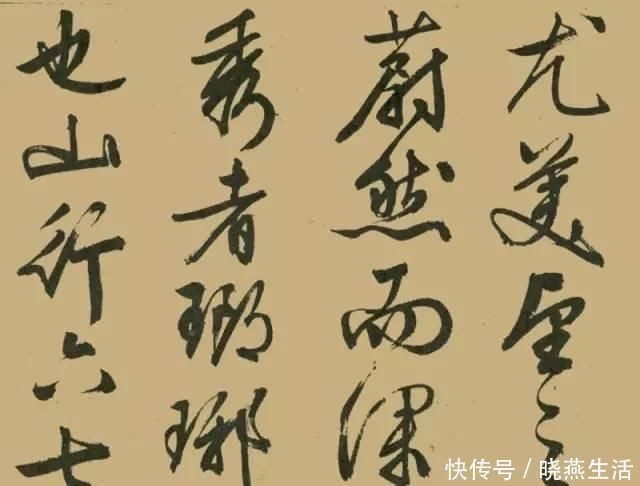 尤美望之
蔚然而深
秀者瑯琊
也山行六七
快传号/晓燕生活